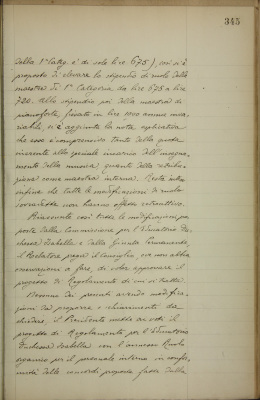 345
della 1ª Categ. è di sole lire 675), così si è
proposto di elevare lo stipendio di ruolo della
maestra di 1ª Categoria da lire 675 a lire
720. Allo stipendio poi della maestra di
pianoforte, fissato in lire 1000 annue inva-
riabili, si è aggiunta la nota esplicativa
che esso è comprensivo tanto della quota
inerente alla qualità d'insegna-
mento della musica, quanto della retribu-
zione come maestra interna. Resta inteso
infine che tutte le modificazioni di ruolo
non hanno effetto retroattivo.
Riassunte così tutte le modificazioni pro-
poste dalla Commissione per l'Educatorio Du-
chessa Isabella e dalla Giunta Permanente,
il Relatore prega il Consiglio, ove non abbia
osservazioni a fare, di voler approvare il
progetto di Regolamento di cui si tratta.
Nessuno dei presenti avendo modifica-
zioni da proporre o chiarimenti da
chiedere, il Presidente mette ai voti il
progetto di Regolamento per l'Educatorio
Duchessa Isabella con l'annesso Ruolo
organico per il personale interno in confor-
mità delle concordi proposte fatte dalla